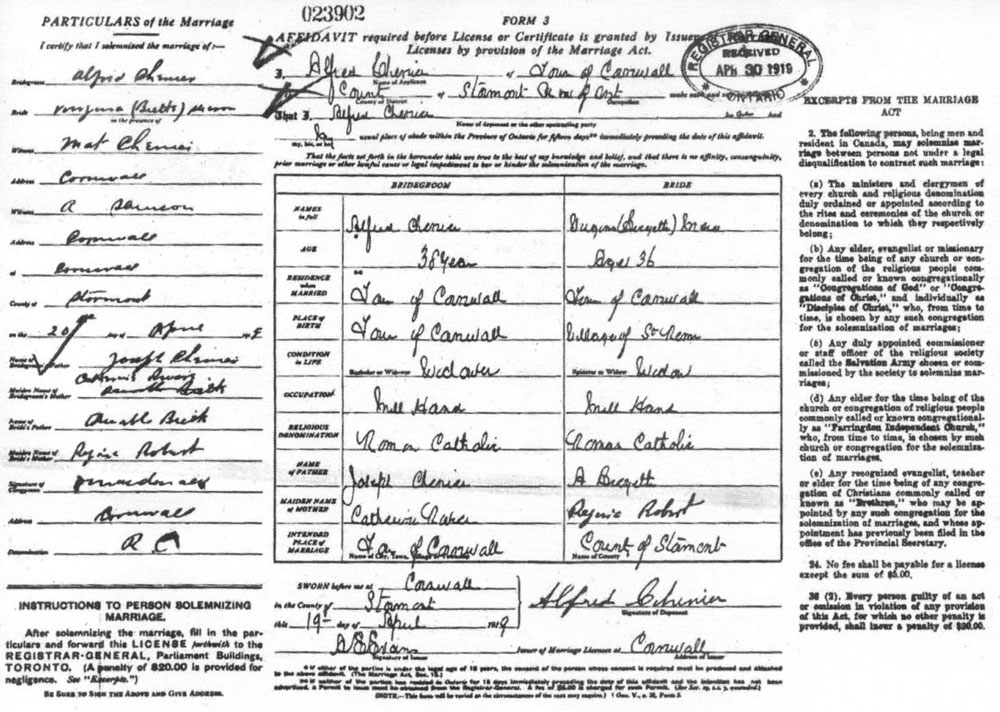 PARTICULARS of the Marriage
I certify that I solemnised the marriage of:—
Bridegroom Alfred Chenier
Bride Virginia (Brette)
in the presence of
Witness Mat Chenier
Address Cornwall
Witness A Samson
Address Cornwall
at Cornwall
County of Stormont
on the 20th day of April 1919
Name of Bridegroom's Father Joseph Chenier
Maiden Name of Bridegroom's Mother
Name of Bride's Father
Maiden Name of Bride's Mother Regina Robert
Signature of Clergyman
Address Cornwall
Denomination R C
INSTRUCTIONS TO PERSON SOLEMNIZING
MARRIAGE.
After solemnizing the marriage, fill in the par-
ticulars and forward this LICENSE forthwith to the
REGISTRAR-GENERAL, Parliament Buildings,
TORONTO. (A penalty of $20.00 is provided for
negligence. See "Excerpts.")
BE SURE TO SIGN THE ABOVE AND GIVE ADDRESS.
023902
FORM 3
AFFIDAVIT required before License or Certificate is granted by Issuer
Licenses by provision of the Marriage Act.
REGISTRAR GENERAL
RECEIVED
APR 30 1919
ONTARIO
I, Alfred Chenier of Town of Cornwall
Name of Applicant
County of Stormont
County or District
Occupation
That I, Alfred Chenier
Name of deponent or the other contracting party
my, his, or her usual place of abode within the Province of Ontario for fifteen days immediately preceding the date of this affidavit.
That the facts set forth in the hereunder table are true to the best of my knowledge and belief, and that there is no affinity, consanguinity,
prior marriage or other lawful cause or legal impediment to bar or hinder the solemnization of the marriage.
BRIDEGROOM BRIDE
NAMES in full Alfred Chenier
AGE 38 Years Aged 36
RESIDENCE when MARRIED Town of Cornwall Town of Cornwall
PLACE OF BIRTH Town of Cornwall Village of St
CONDITION in LIFE Bachelor or Widower Widower Spinster or Widow Widow
OCCUPATION Mill Hand Mill Hand
RELIGIOUS DENOMINATION Roman Catholic Roman Catholic
NAME of FATHER Joseph Chenier A
MAIDEN NAME of MOTHER Catherine Regina Robert
INTENDED PLACE of MARRIAGE Town of Cornwall County of Stormont
Name of City, Town, Village or Township Name of County
SWORN before me at Cornwall
in the County of Stormont
this 19th day of April 1919
Alfred Chenier
Signature of Deponent
Signature of Issuer
Issuer of Marriage Licenses at Cornwall
EXCERPTS FROM THE MARRIAGE
ACT
2. The following persons, being men and
resident in Canada, may solemnize mar-
riage between persons not under a legal
disqualification to contract such marriage:
(a) The ministers and clergymen of
every church and religious denomination
duly ordained or appointed according to
the rites and ceremonies of the church or
denomination to which they respectively
belong;
(b) Any elder, evangelist or missionary
for the time being of any church or con-
gregation of the religious people com-
monly called or known congregationally
as "Congregations of God" or "Congre-
gations of Christ," and individually as
"Disciples of Christ," who, from time to
time, is chosen by any such congregation
for the solemnization of marriages;
Any duly appointed commissioner
or staff officer of the religious society
called the Salvation Army chosen or com-
missioned by the society to solemnize mar-
riages;
(d) Any elder for the time being of the
church or congregation of religious people
commonly called or known congregational-
ly as "Farringdon Independent Church,"
who, from time to time, is chosen by such
church or congregation for the solemniza-
tion of marriages.
(e) Any recognized evangelist, teacher
or elder for the time being of any congre-
gation of Christians commonly called or
known as "Brethren," who may be ap-
pointed by any such congregation for the
solemnization of marriages, and whose ap-
pointment has previously been filed in the
office of the Provincial Secretary.
24. No fee shall be payable for a license
except the sum of $5.00.
Every person guilty of an act
or omission in violation of any provision
of this Act, for which no other penalty is
provided, shall incur a penalty of $20.00.